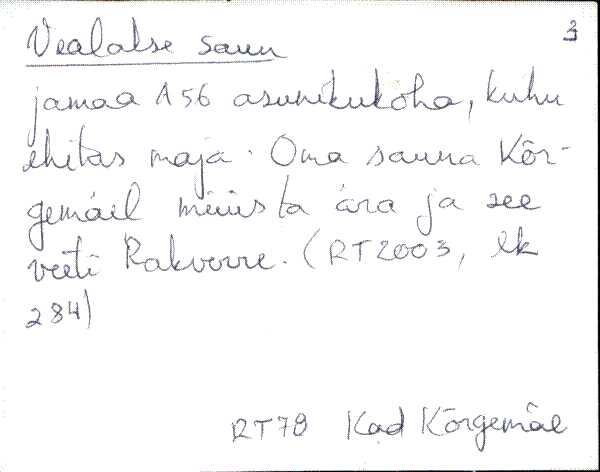 3
Vealatse saun
jamaa A56 asunikukoha, kuhu
ehitas maja. Oma sauna Kõr-
gemäel müüs ta ära ja see
veeti Rakverre. (RT2003, lk
284)
RT78 Kad Kõrgemäe